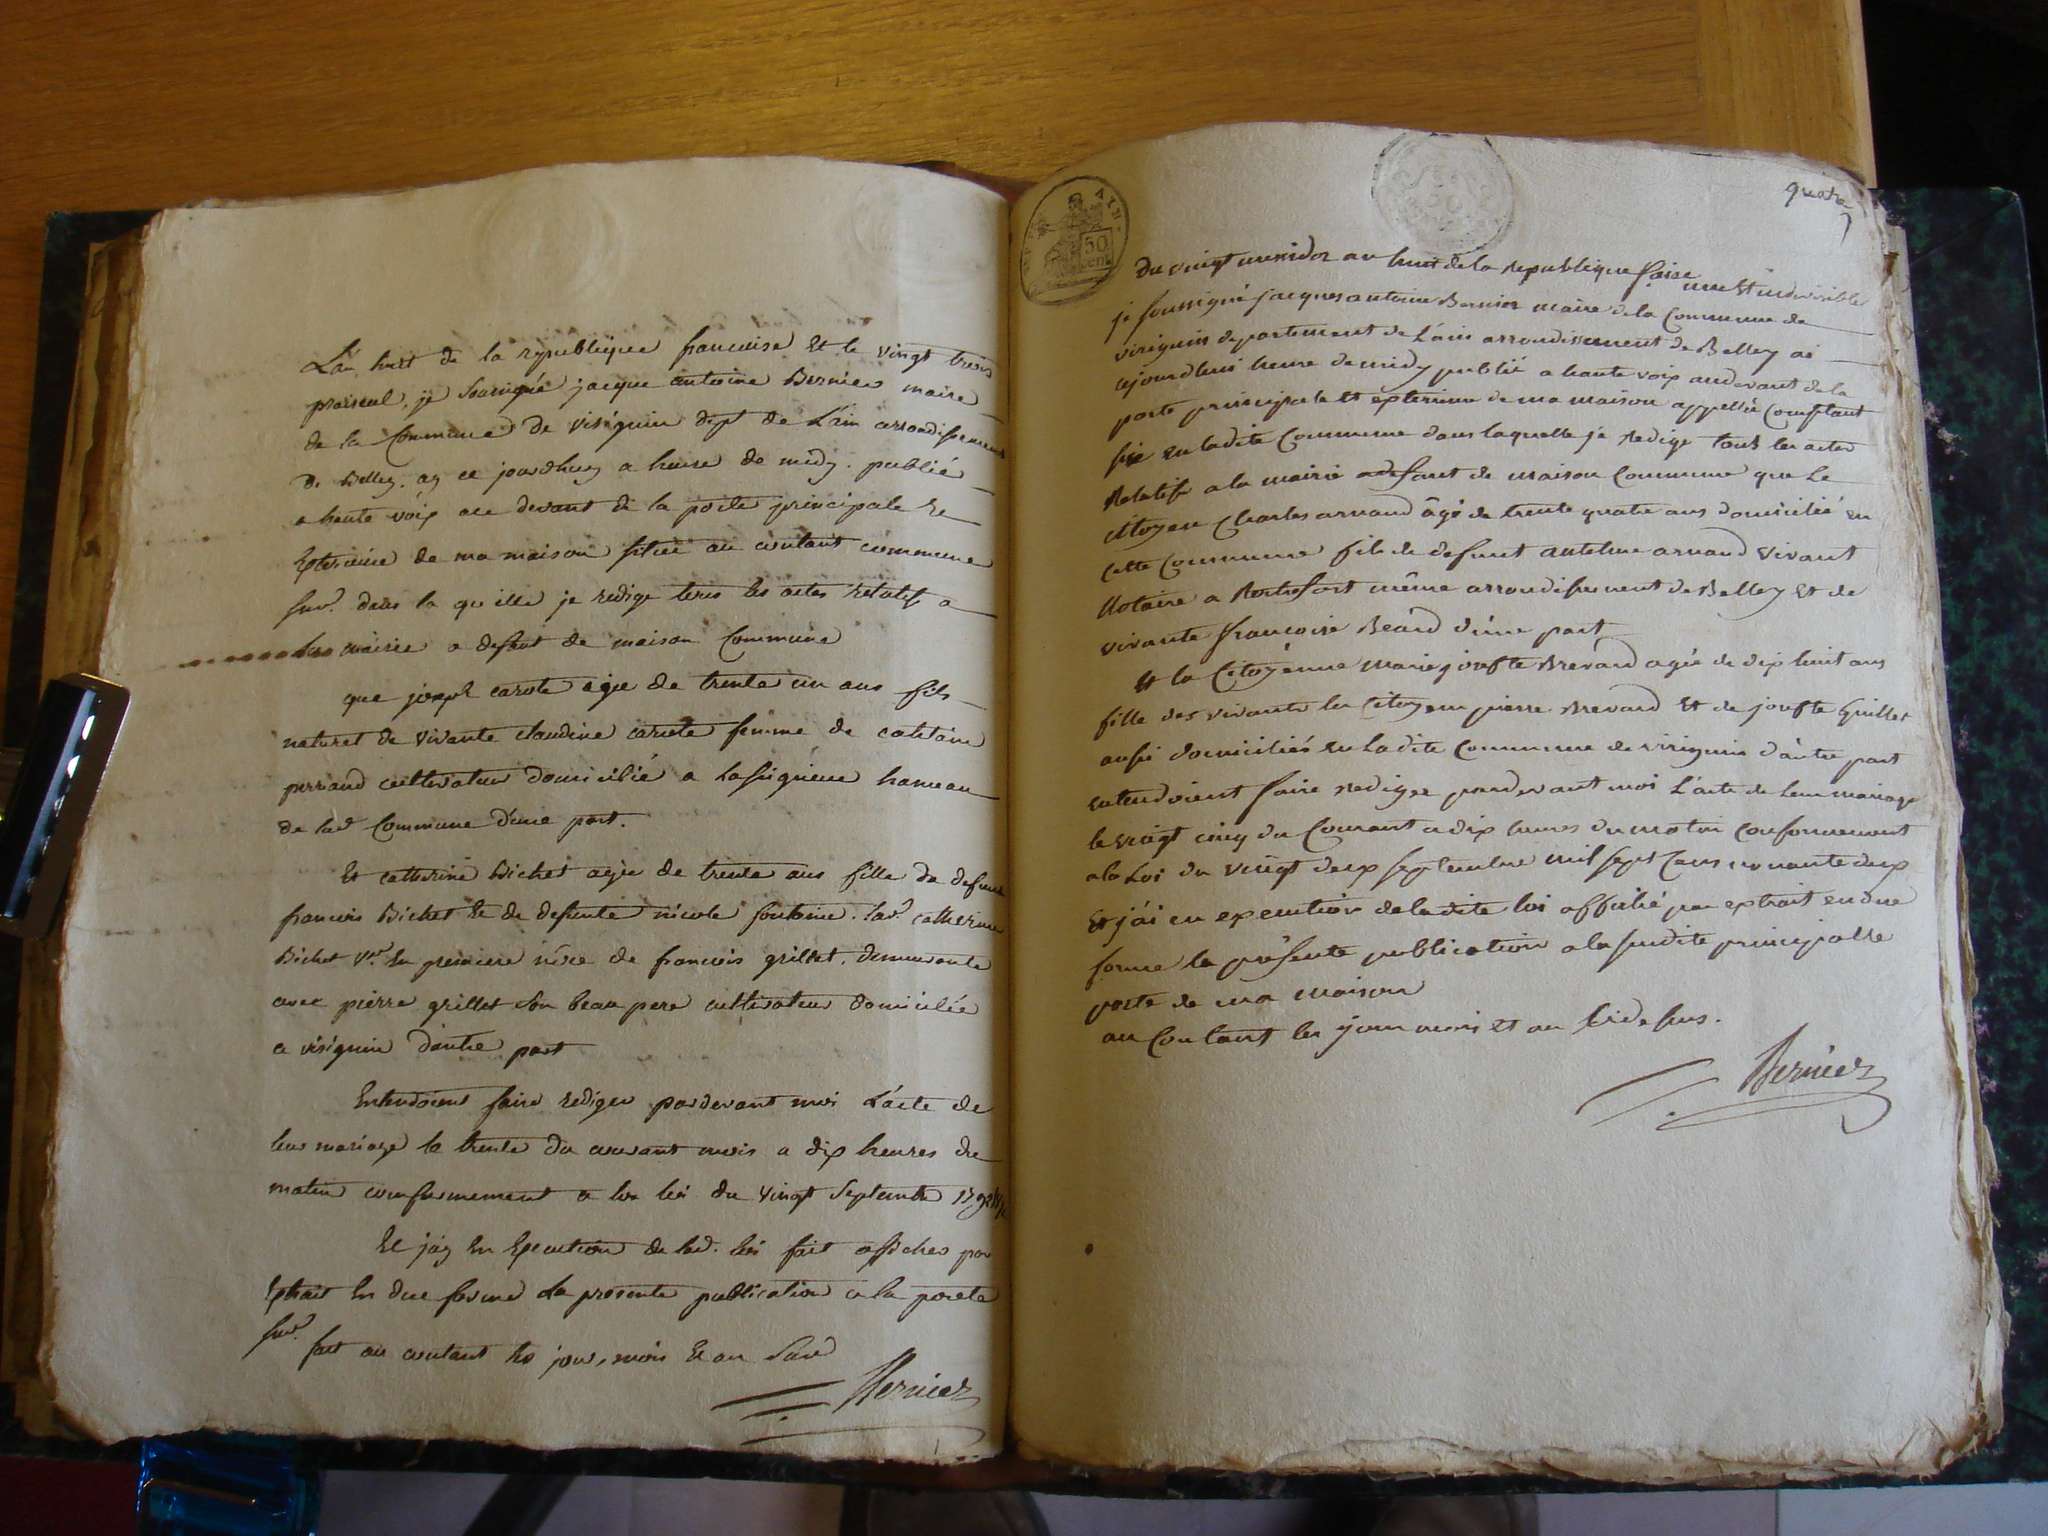 L'an huit de la republique francoise et le vingt trois
prairial, je soussigné jacque antoine Bernier maire
de la Commune de virignin dept de L'ain arrondissement
de Belley. ay ce jourdhuy a heure de midy. publié
a haute voix au devant de la porte principale et
Exterieure de ma maison située au coutant commune
susd. dans la qu'elle je redige tous les actes relatifs a
la mairie a defaut de maison Commune
que joseph carote agée de trente un ans fils
naturel de vivante claudine carote femme de
perrand cultivateur domicilié a hameau
de lad Commune d'une part.
Et catherine Bichet agée de trente ans fille de defunt
francois Bichet et de defunte nicole fontaine. lad. catherine
Bichet Ve. En premiere nôce de francois grillet. demeurante
avec pierre grillet son beau pere cultivateur domiciliée
a virignin d'autre part
Entendoient faire rediger pardevant moi L'acte de
leur mariage le trente du courant mois a dix heures du
matin conformement a la loi du vingt Septembre 1792
Et j'ay En Execution de lad. loi fait afficher par
Extrait En due forme La presente publication a la porte
susd. fait au coutant les jour, mois et an Susd
Bernier
quatre
50
cent
du vingt messidor an huit de la republique faise une et indivisible
je soussigné jacques antoine Bernier maire de la Commune de
virignin departement de L'ain arrondissement de Belley ai
ajourdhui heure de midy publié a haute voix audevant de la
porte principale et exterieure de ma maison appellée Coutant
sise en ladite Commune dans laquelle je redige tous les actes
Relatifs a la mairie adefaut de maison Commune que Le
Citoyen Charles arnaud âgé de trente quatre ans domicilié en
cette Commune fils de defunt antelme arnaud vivant
Notaire a Rochefort même arrondissement de Belley et de
vivante francoise Beard d'une part
Et la Citoyenne marie josefte Brevard agée de dix huit ans
fille des vivants les Citoyen pierre Brevard Et de josefte Guillet
aussi domiciliés en Ladite Commune de virignin d'autre part
entendoient faire rediger pardevant moi L'acte de leur mariage
le vingt cinq du Courant a dix heures du matin conformement
a la Loi du vingt deux septembre mil sept Cens nonante deux
Et j'ai en execution de ladite loi affiché par extrait en due
forme la présente publication a la susdite principalle
porte de ma maison
au Coutant les jour mois et an Cidessus.
Bernier